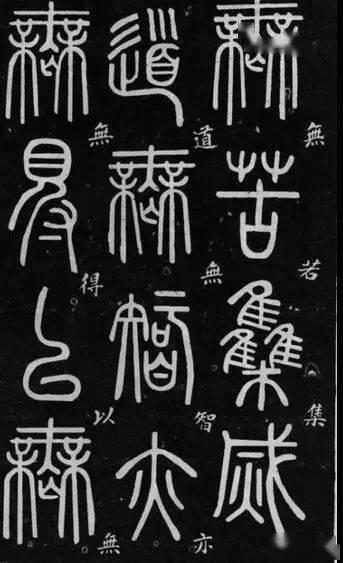 無苦集滅
無集
道無智亦
道無智亦
無得以無
無得以無